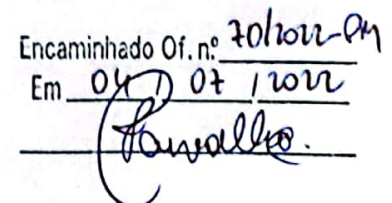 Encaminhado Of. n.º 70/2022-PM
Em 04 / 07 / 2022
Carvalho.